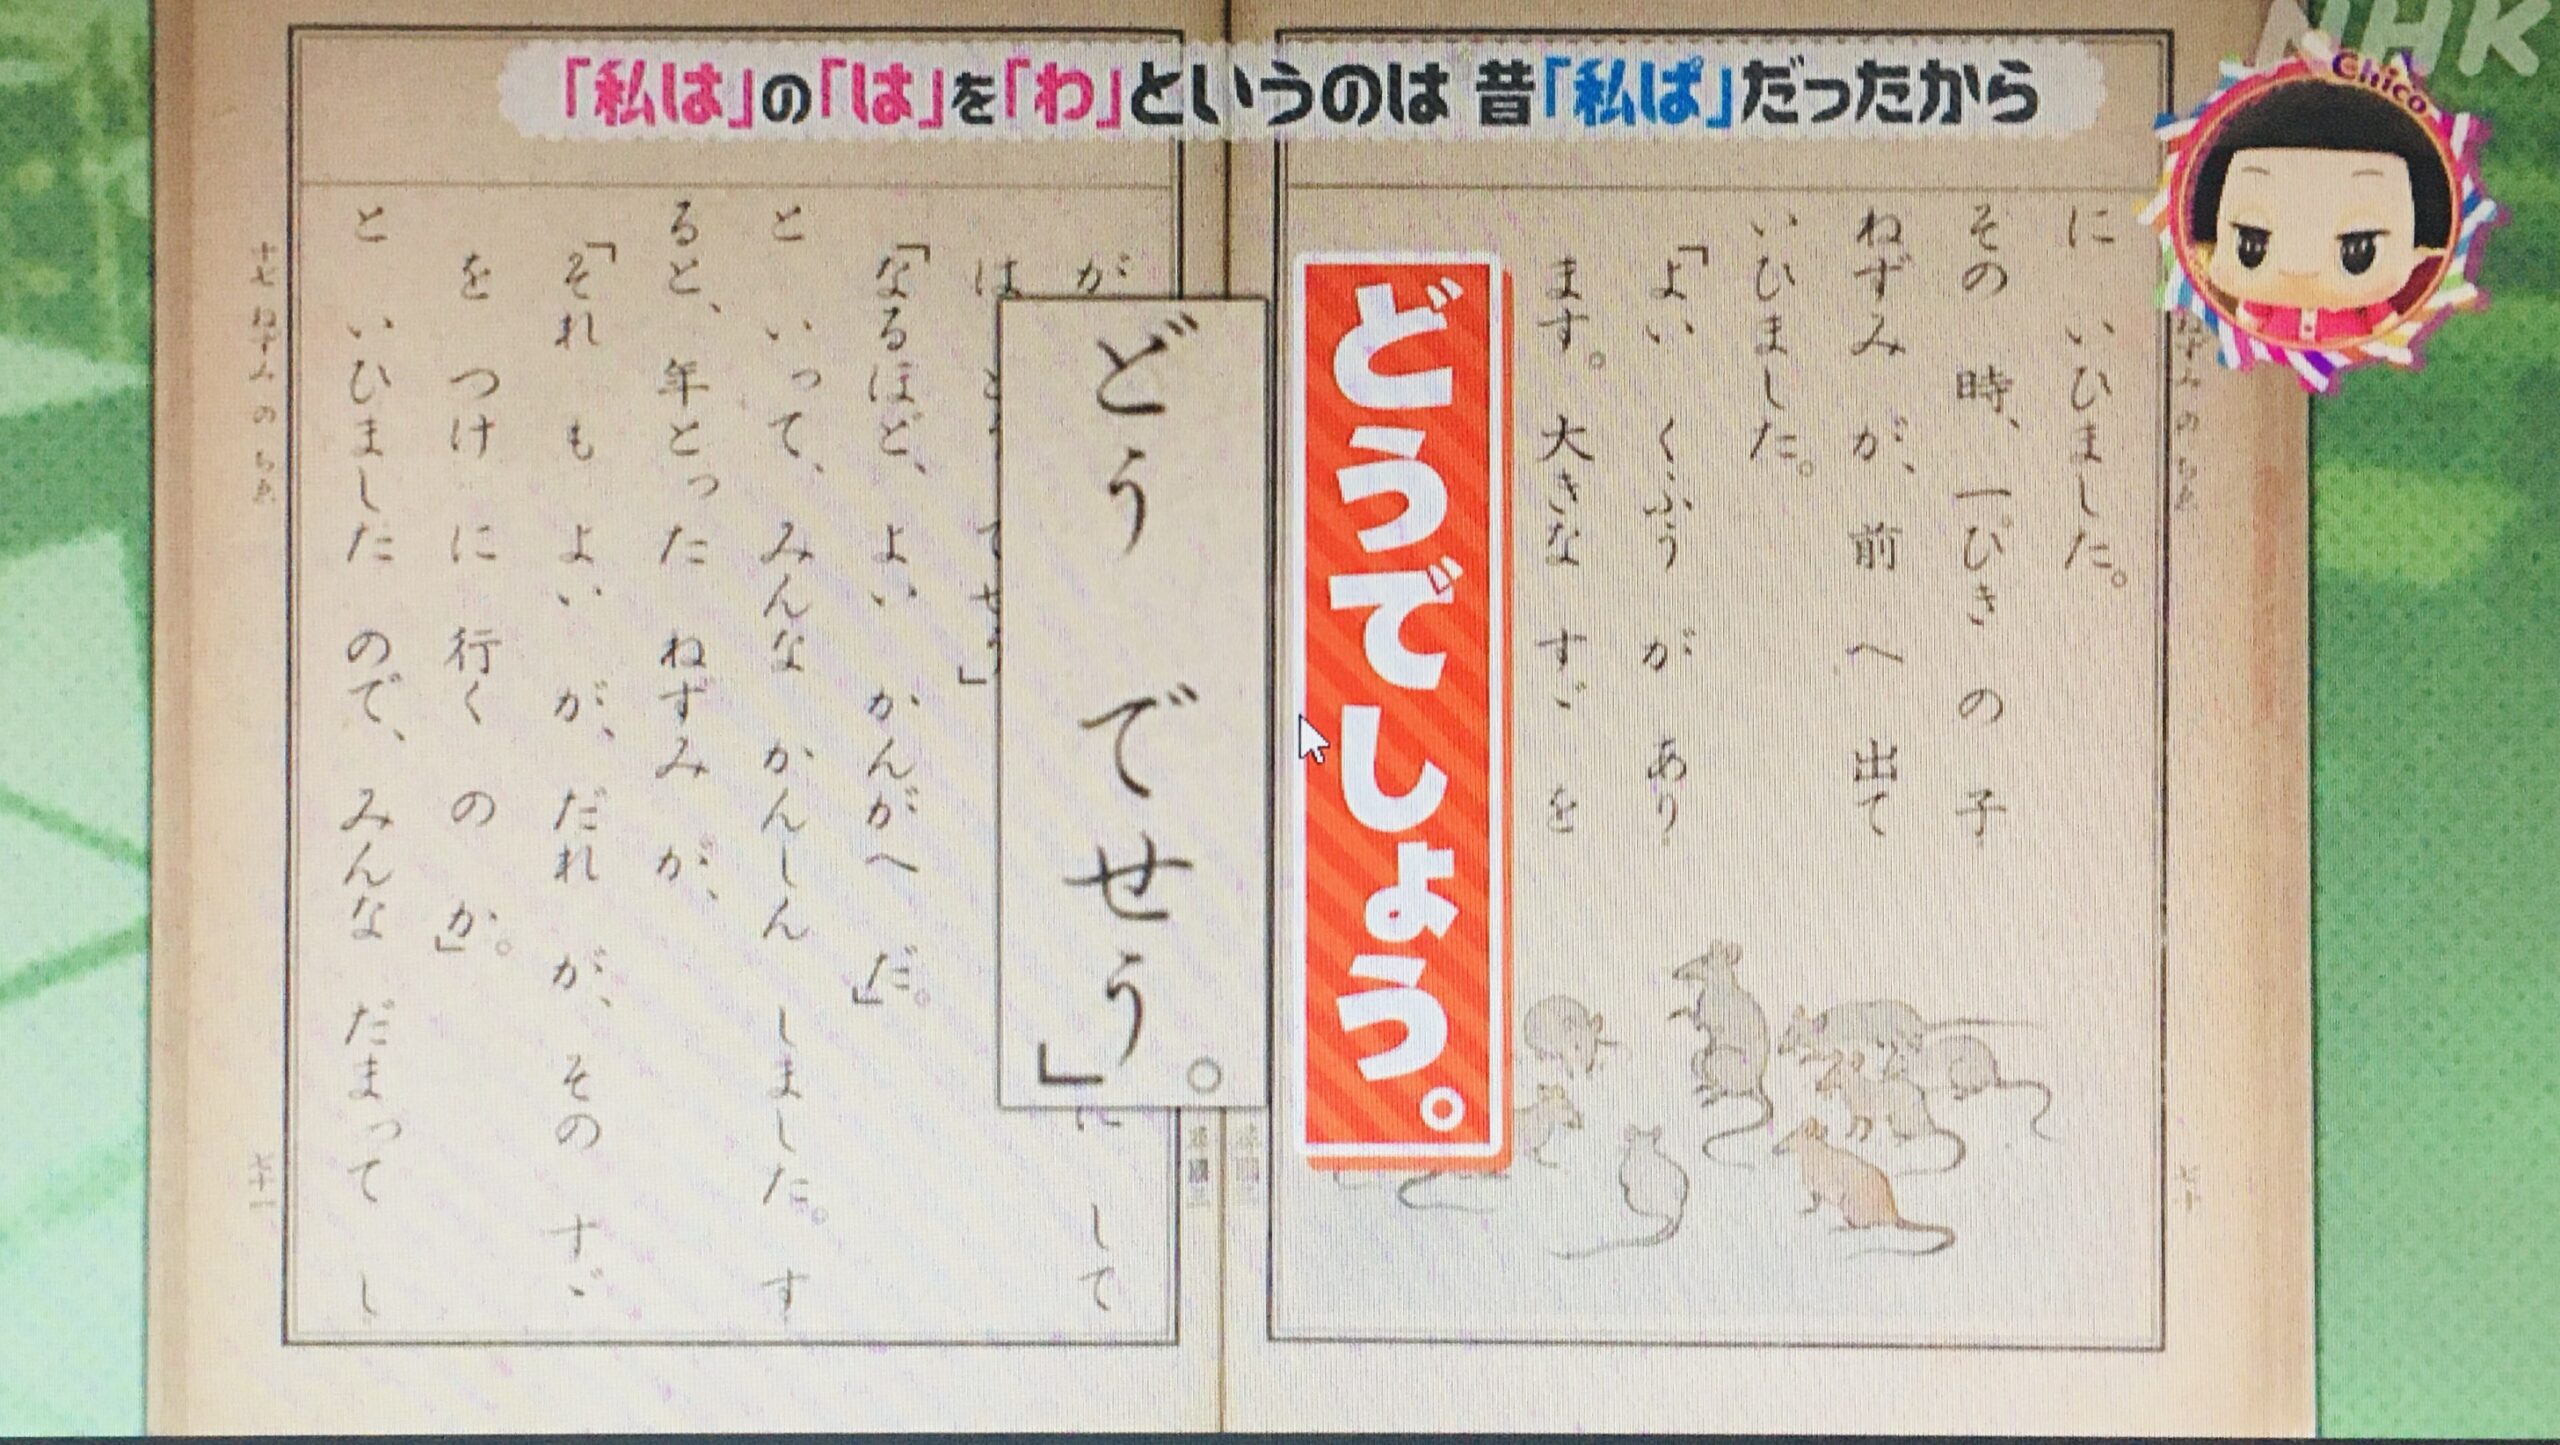 NHK
Chico
「私は」の「は」を「わ」というのは 昔「私ぱ」だったから
に いひました。
その 時、一ぴき の 子
ねずみ が、前 へ 出て
いひました。
「よい くふう が あり
ます。大きな すゞ を
どうでしょう。
どう でせう。」
が
に して
は
「なるほど、よい かんがへ だ。」
と いって、みんな かんしん しました。す
ると、年とった ねずみ が、
「それ も よい が、だれ が、その すゞ
を つけ に 行く の か。」
と いひました ので、みんな だまって し